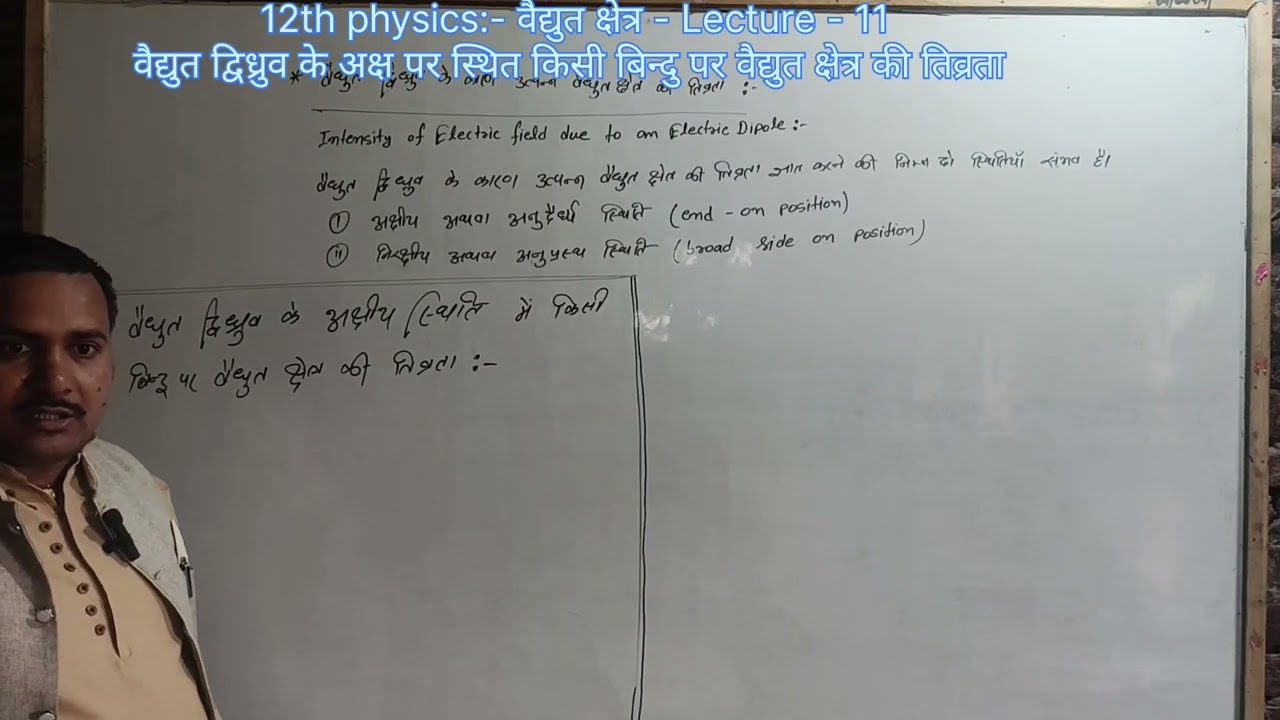 12th physics:- वैद्युत क्षेत्र - Lecture - 11
वैद्युत द्विध्रुव के अक्ष पर स्थित किसी बिन्दु पर वैद्युत क्षेत्र की तिव्रता
* वैद्युत द्विध्रुव के कारण उत्पन्न वैद्युत क्षेत्र की तिव्रता :-
Intensity of Electric field due to an Electric Dipole :-
वैद्युत द्विध्रुव के कारण उत्पन्न वैद्युत क्षेत्र की तिव्रता ज्ञात करने की निम्न दो स्थितियाँ संभव है।
(i) अक्षीय अथवा अनुदैर्ध्य स्थिति (end - on position)
(ii) निरक्षीय अथवा अनुप्रस्थ स्थिति (broad side on position)
वैद्युत द्विध्रुव के अक्षीय स्थिति में किसी
बिन्दु पर वैद्युत क्षेत्र की तिव्रता :-